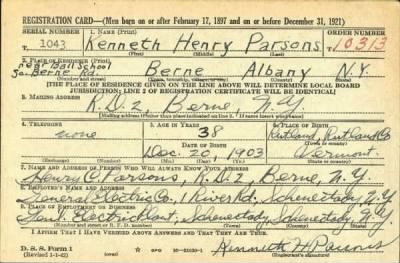 REGISTRATION CARD—(Men born on or after February 17, 1897 and on or before December 31, 1921)
SERIAL NUMBER 1. NAME (Print) ORDER NUMBER
1043 Kenneth Henry Parsons 10313
(First) (Middle) (Last)
2. PLACE OF RESIDENCE (Print)
near Ball School
So. Berne Rd. Berne Albany N.Y.
(Number and street) (Town, township, village, or city) (County) (State)
[THE PLACE OF RESIDENCE GIVEN ON THE LINE ABOVE WILL DETERMINE LOCAL BOARD
JURISDICTION; LINE 2 OF REGISTRATION CERTIFICATE WILL BE IDENTICAL]
3. MAILING ADDRESS
R.D. 2, Berne, N.Y.
[Mailing address if other than place indicated on line 2. If same insert word same]
4. TELEPHONE 5. AGE IN YEARS 6. PLACE OF BIRTH
none 38 Rutland, Rutland Co
DATE OF BIRTH (Town or county)
Dec. 20, 1903 Vermont
(Exchange) (Number) (Mo.) (Day) (Yr.) (State or country)
7. NAME AND ADDRESS OF PERSON WHO WILL ALWAYS KNOW YOUR ADDRESS
Henry C. Parsons, R.D. 2, Berne, N.Y.
8. EMPLOYER'S NAME AND ADDRESS
General Electric Co., 1 River Rd., Schenectady, N.Y.
9. PLACE OF EMPLOYMENT OR BUSINESS
Gen. Electric Plant, Schenectady, Schenectady, N.Y.
(Number and street or R. F. D. number) (Town) (County) (State)
I AFFIRM THAT I HAVE VERIFIED ABOVE ANSWERS AND THAT THEY ARE TRUE.
D. S. S. Form 1
(Revised 1-1-42) (over) GPO 16—21630-1
Kenneth H. Parsons
(Registrant's signature)